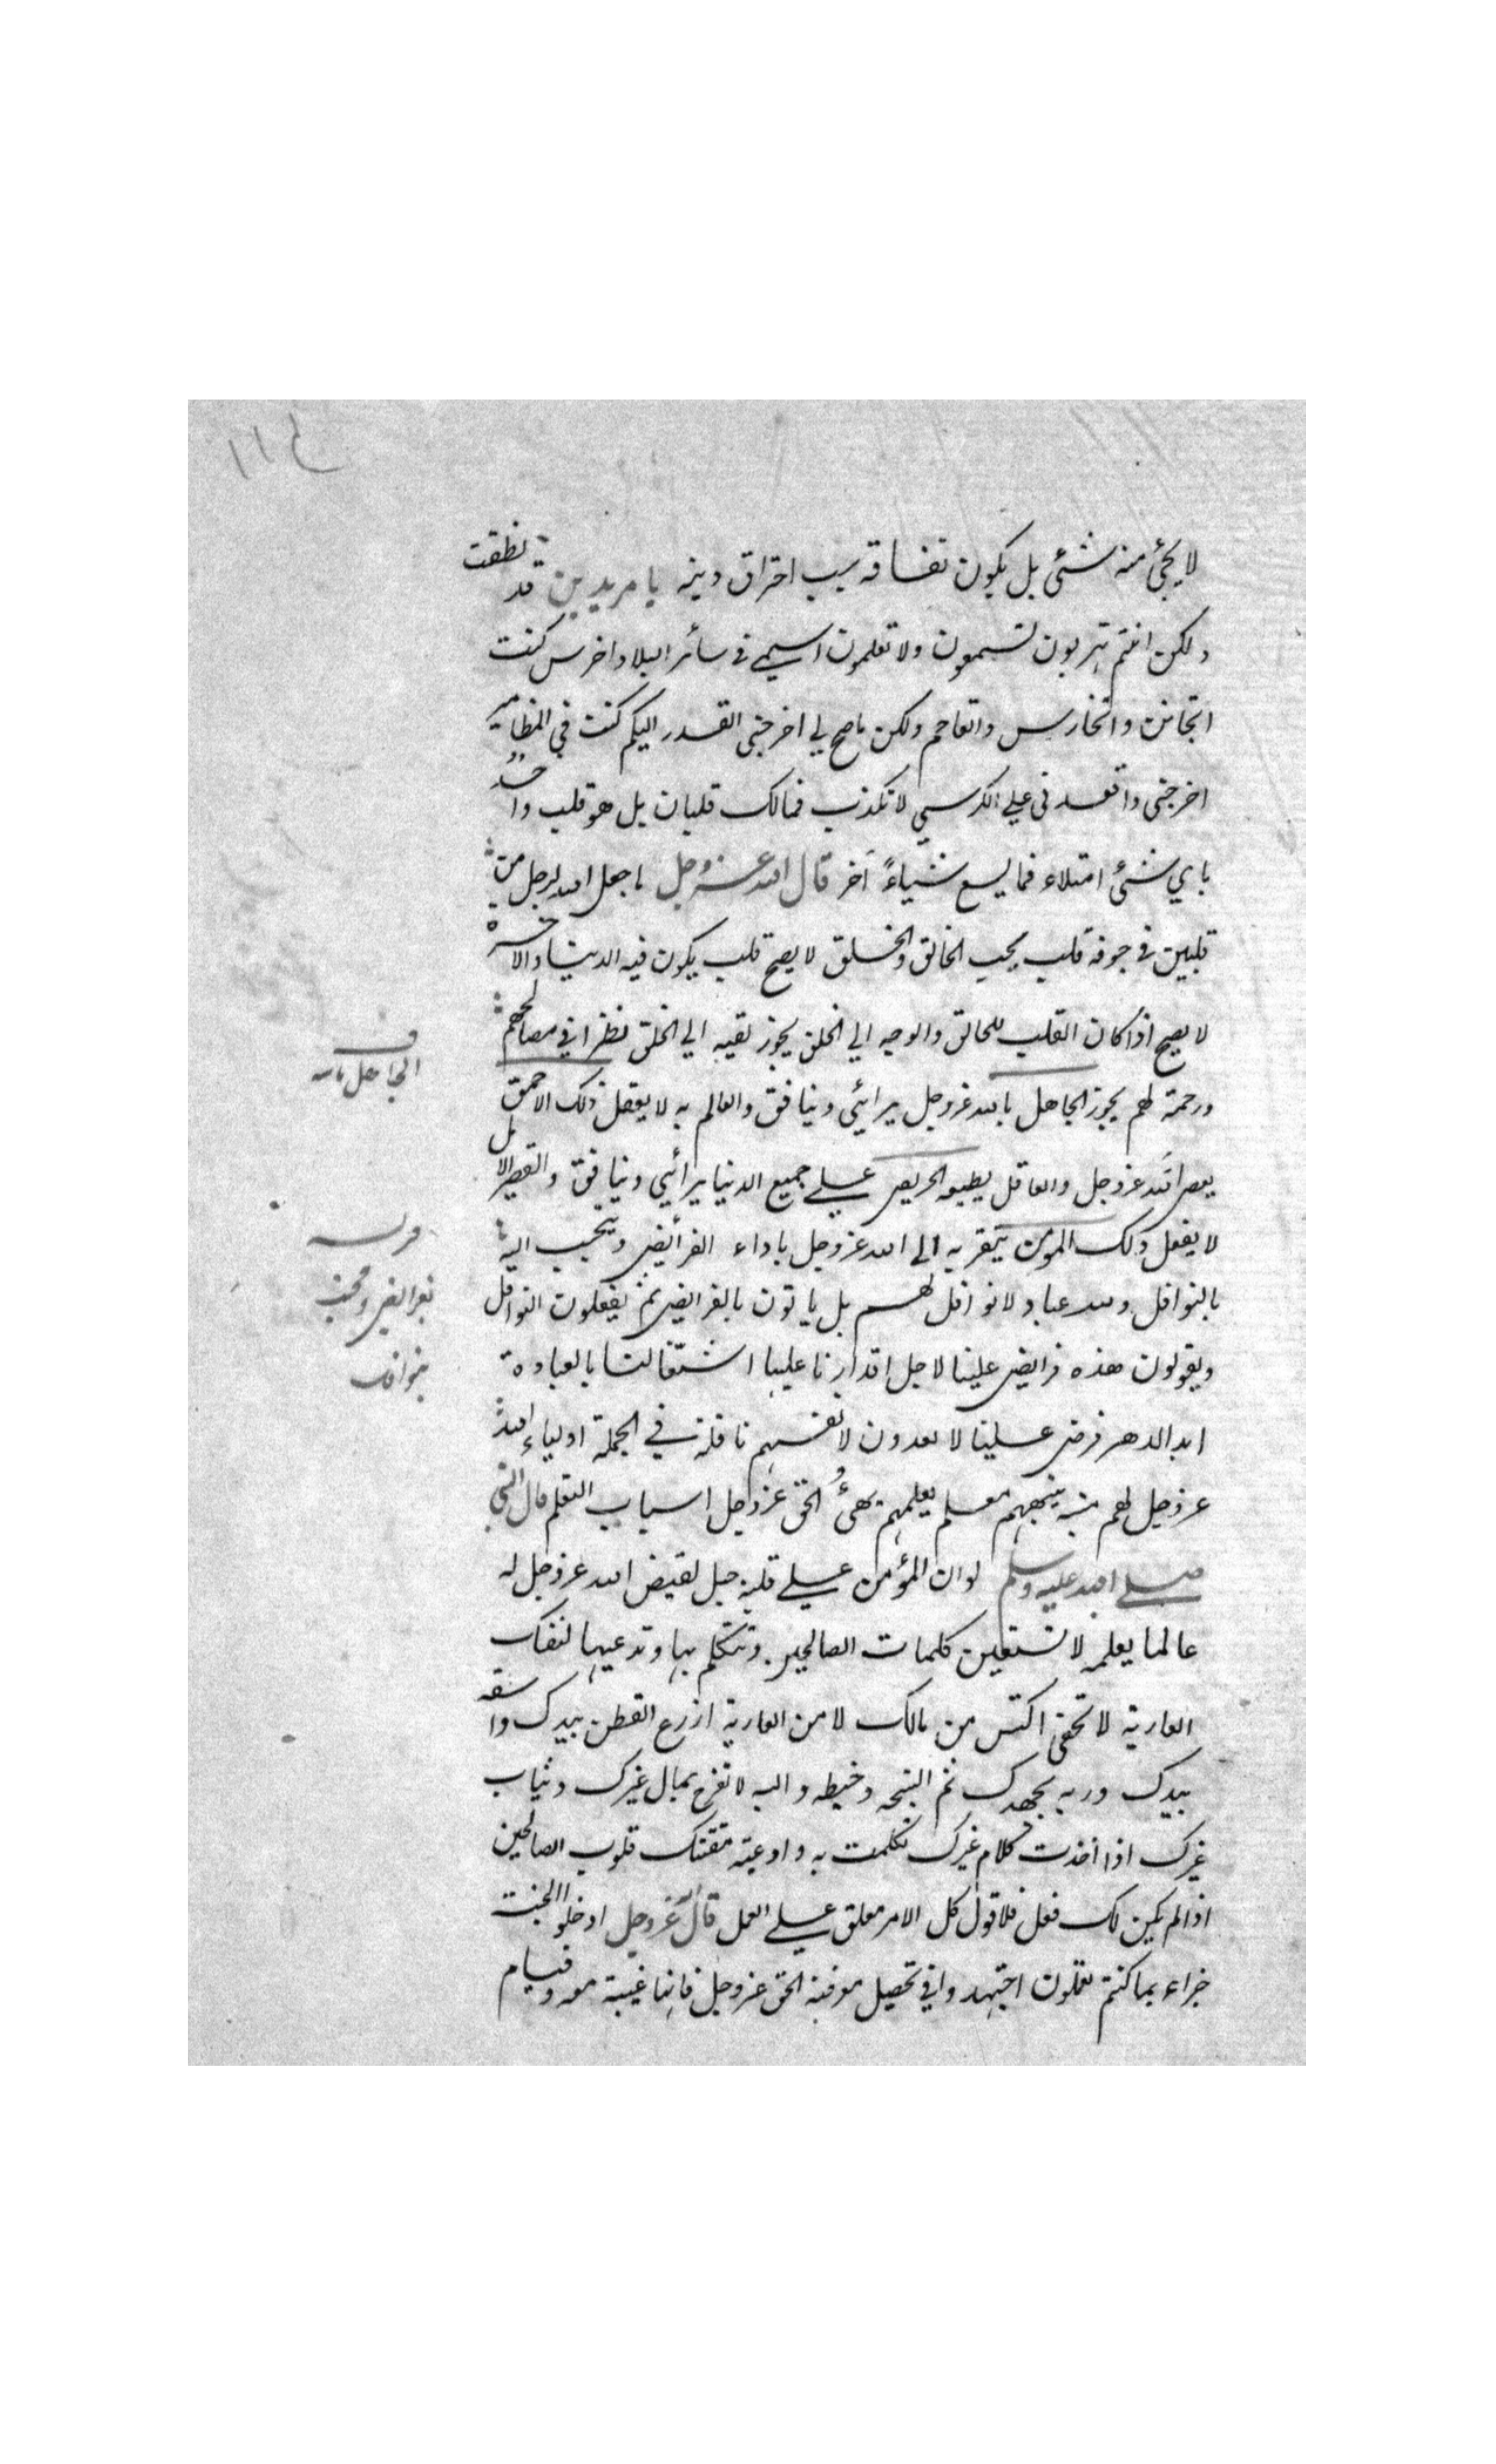 ١١٤
لا يجئ منه شئ بل يكون نفاقه سبب احتراق دينه يا مريدين قد نطقت
ولكن انتم تهربون تسمعون ولا تعلمون اسمي في سائر البلاد اخرس كنت
اتجانن واتخارس واتعاجم ولكن ما صح لي اخرجني القدر اليكم كنت في المطامير
اخرجني واقعدني علي الكرسي لا تكذب فمالك قلبان بل هو قلب واحدٌ
باي شئ امتلاء فما يسع شياءً آخر قال الله عز وجل ما جعل الله لرجل من
قلبين في جوفه قلب يحب الخالق والخلق لا يصح قلب يكون فيه الدنيا والاخرة
لا يصح اذا كان القلب للخالق والوجه الي الخلق يجوز نظرا في مصالحهم
ورحمة لهم يجوز الجاهل بالله عز وجل يرائي وينافق والعالم به لا يفعل ذلك الاحمق
يعص الله عز وجل والعاقل يطيعه الحريص علي جميع الدنيا يرائي وينافق والقصير الامل
لا يفعل ذلك المومن يتقرب الى الله عز وجل باداء الفرائض ويتحبب اليه
بالنوافل ولله عباد لا نوافل لهم بل ياتون بالفرايض ثم يفعلون النوافل
ويقولون هذه فرايض علينا لاجل اقدارنا عليها اشتغالنا بالعبادة
ابد الدهر فرض علينا لا يعدون لانفسهم نافلة في الجملة اولياء الله
عز وجل لهم منبه ينبههم معلم يعلمهم يهئُ الحق عز وجل اسباب التعلم قال النبي
صلي الله عليه وسلم لو ان المؤمن علي قلة جبل لقيض الله عز وجل له
عالما يعلمه لا تستعين كلمات الصالحين وتتكلم بها وتدعيها لنفسك
العارية لا تخفى اكتس من مالك لا من العارية ازرع القطن بيدك واسقه
بيدك وربه بجهدك ثم انسجه وخيطه والبسه لا تفرح بمال غيرك وثياب
غيرك اذا اخذت كلام غيرك تكلمت به وادعيته مقتتك قلوب الصالحين
اذا لم يكن لك فعل فلا قول كل الامر معلق علي العمل قال الله عز وجل ادخلوا الجنة
جزاء بما كنتم تعملون اجتهدوا في تحصيل معرفة الحق عز وجل فانها غيبة معه وقيام
الجاهل بالله
بفرايض ومحبت
بنوافل